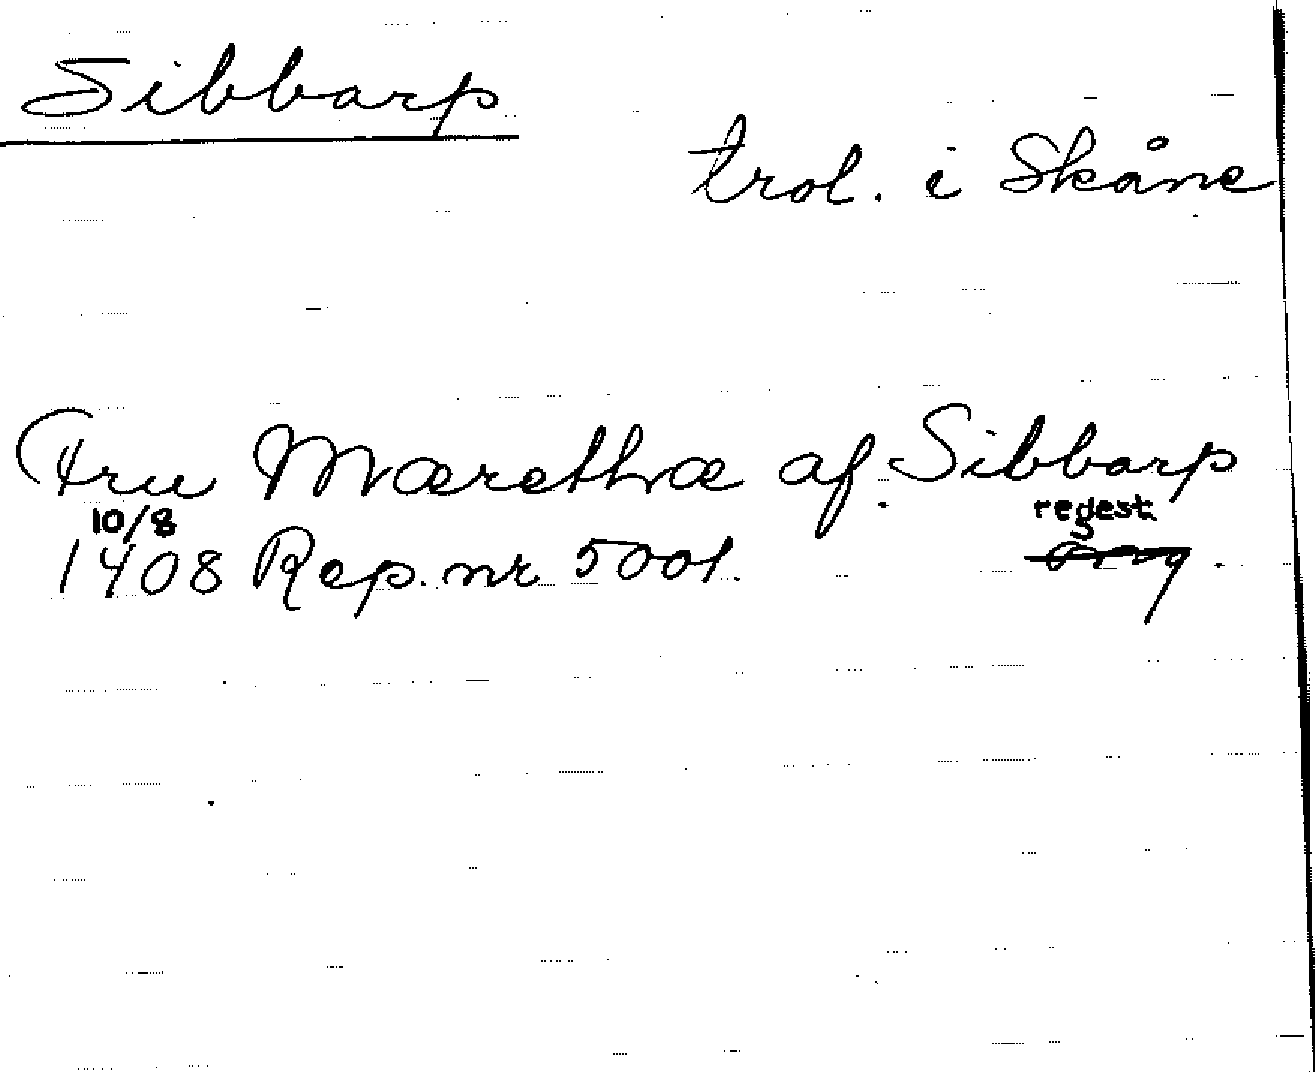 Sibbarp
trol. i Skåne
Fru Mærethæ af Sibbarp
10/8 regest
1408 Rep. nr 5001.